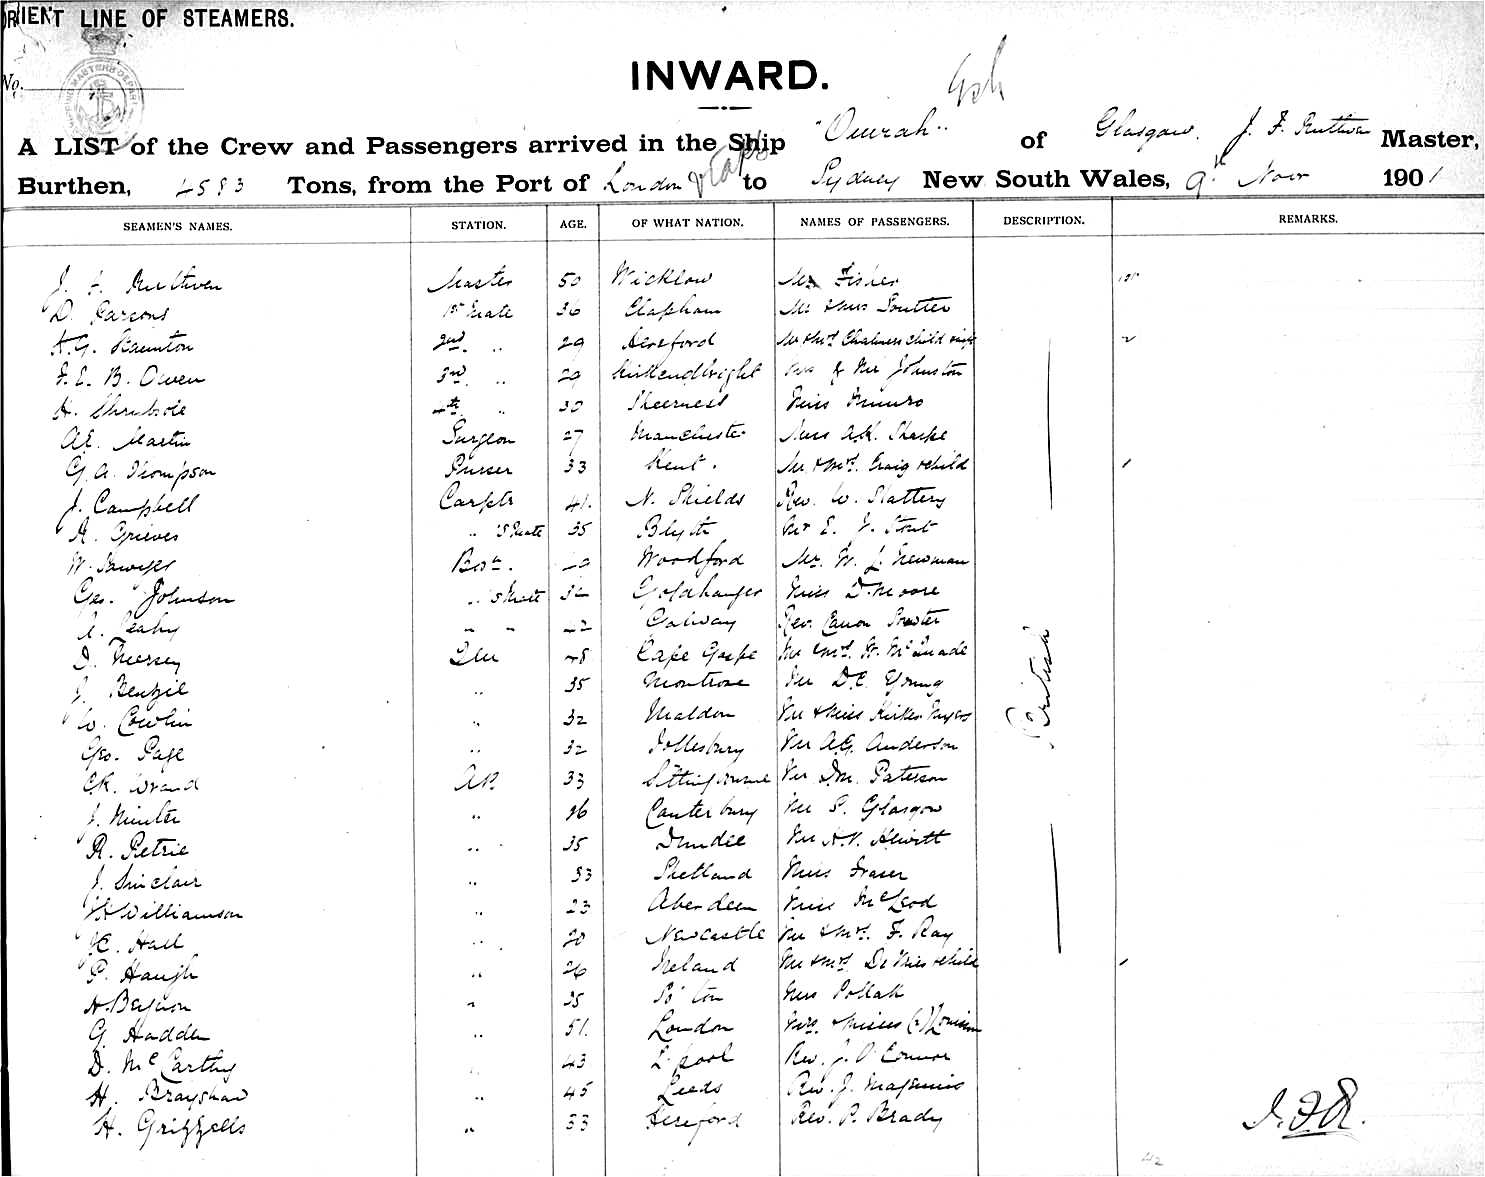 ORIENT LINE OF STEAMERS.
No.
INWARD.
A LIST of the Crew and Passengers arrived in the Ship "Omrah" of Glasgow. J. F. Ruthven Master,
Burthen, 4583 Tons, from the Port of London to Sydney New South Wales, 9th Novr 1901
SEAMEN'S NAMES. STATION. AGE. OF WHAT NATION. NAMES OF PASSENGERS. DESCRIPTION. REMARKS.
J. F. Ruthven Master 50 Wicklow Fisher
D. Parsons 1st Mate 36 Clapham Mr & Mrs Soutter
A.G. Staunton 2nd " 29 Hereford Mr & Mrs Chalmers child
F. E. B. Owen 3rd " 29 Kirkcudbright Johnston
H. Shrubsole 4th " 30 Sheerness Miss Munro
A.E. Martin Surgeon 27 Manchester Miss A.K. Sharpe
G. A. Thompson Purser 33 Kent. Mr & Mrs. Craig & child
J. Campbell Carptr 41. N. Shields Rev. W. Slattery
A. Grieves " 's Mate 35 Blyth Mr E. J. Stout
W. Sawyer Bosn. Woodford Mr. W. L. Newman
Geo. Johnson " 's Mate 32 Goldhanger Miss D. Moore
A. Leahy " " 42 Galway Rev. Canon Sowter
J. Mersey QM 48 Cape Gaspe Mr & Mrs. H. McQuade
J. Kenzie " 35 Montrose Mr D.C. Young
W. Cowlin " 32 Maldon Mr & Miss
Geo. Page " 32 Tollesbury Mr A.G. Anderson
C.K. Wrand AB 33 Sittingbourne Mr Jn. Paterson
J. Minter " 26 Canterbury Mr S. Glasgow
R. Petrie " 35 Dundee Mr A.V. Hewitt
J. Sinclair " 33 Shetland Miss Fraser
Williamson " 23 Aberdeen Miss McLeod
Hall " 20 Newcastle Mr & Mrs. F. Ray
P. Haugh " 26 Ireland Mr & Mrs De & child
" 25 B'ton Miss Pollak
G. Hadden " 51. London Mrs. & Misses (2)
D. McCarthy " 43 L'pool Rev. J. O'Connor
H. Brayshaw " 45 Leeds Rev. J. Maginnis
H. Grizzells " 33 Hereford Rev. P. Brady
British
J.F.R.
42